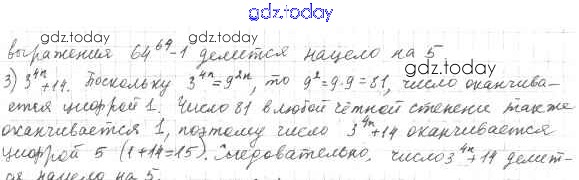 gdz.today
выражения 64⁶⁹-1 делится нацело на 5
gdz.today gdz.today
3) 3⁴ⁿ+14. Поскольку 3⁴ⁿ=9²ⁿ, то 9²=9·9=81, число оканчива-
ется цифрой 1. Число 81 в любой чётной степени также
оканчивается 1, поэтому число 3⁴ⁿ+14 оканчивается
цифрой 5 (1+14=15). Следовательно, число 3⁴ⁿ+14 делит-
gdz.today gdz.today
ся нацело на 5.